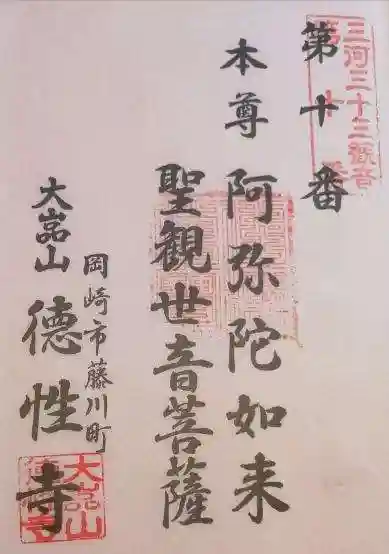 三河三十三観音
第十番
第十番
本尊 阿弥陀如来
聖観世音菩薩
岡崎市藤川町
大嵓山 徳性寺
大嵓山